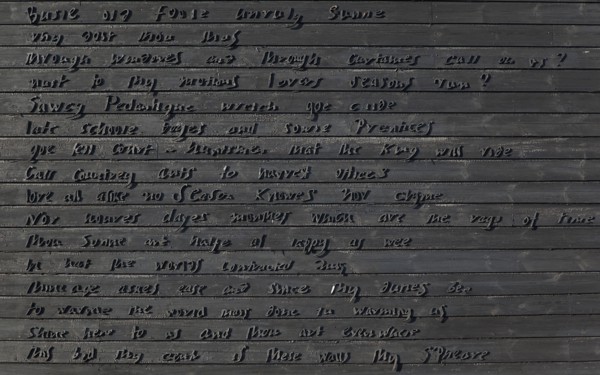 Busie old Foole unruly Sunne
why dost thou thus
through windowes and through curtaines call on us?
must to thy motions lovers seasons run?
Sawcy Pedantique wretch goe chide
late schoole boyes and sowre Prentices
goe tell Court-huntsmen that the King will ride
Call Countrey ants to harvest offices
love all alike no season knowes nor clyme
Nor houres dayes months which are the rags of time
thou Sunne art halfe as happy as wee
In that the worlds contracted thus
Thine age askes ease and since thy duties bee
to warme the world thats done in warming us
Shine here to us and thou art everywhere
this bed thy center is these walls thy spheare